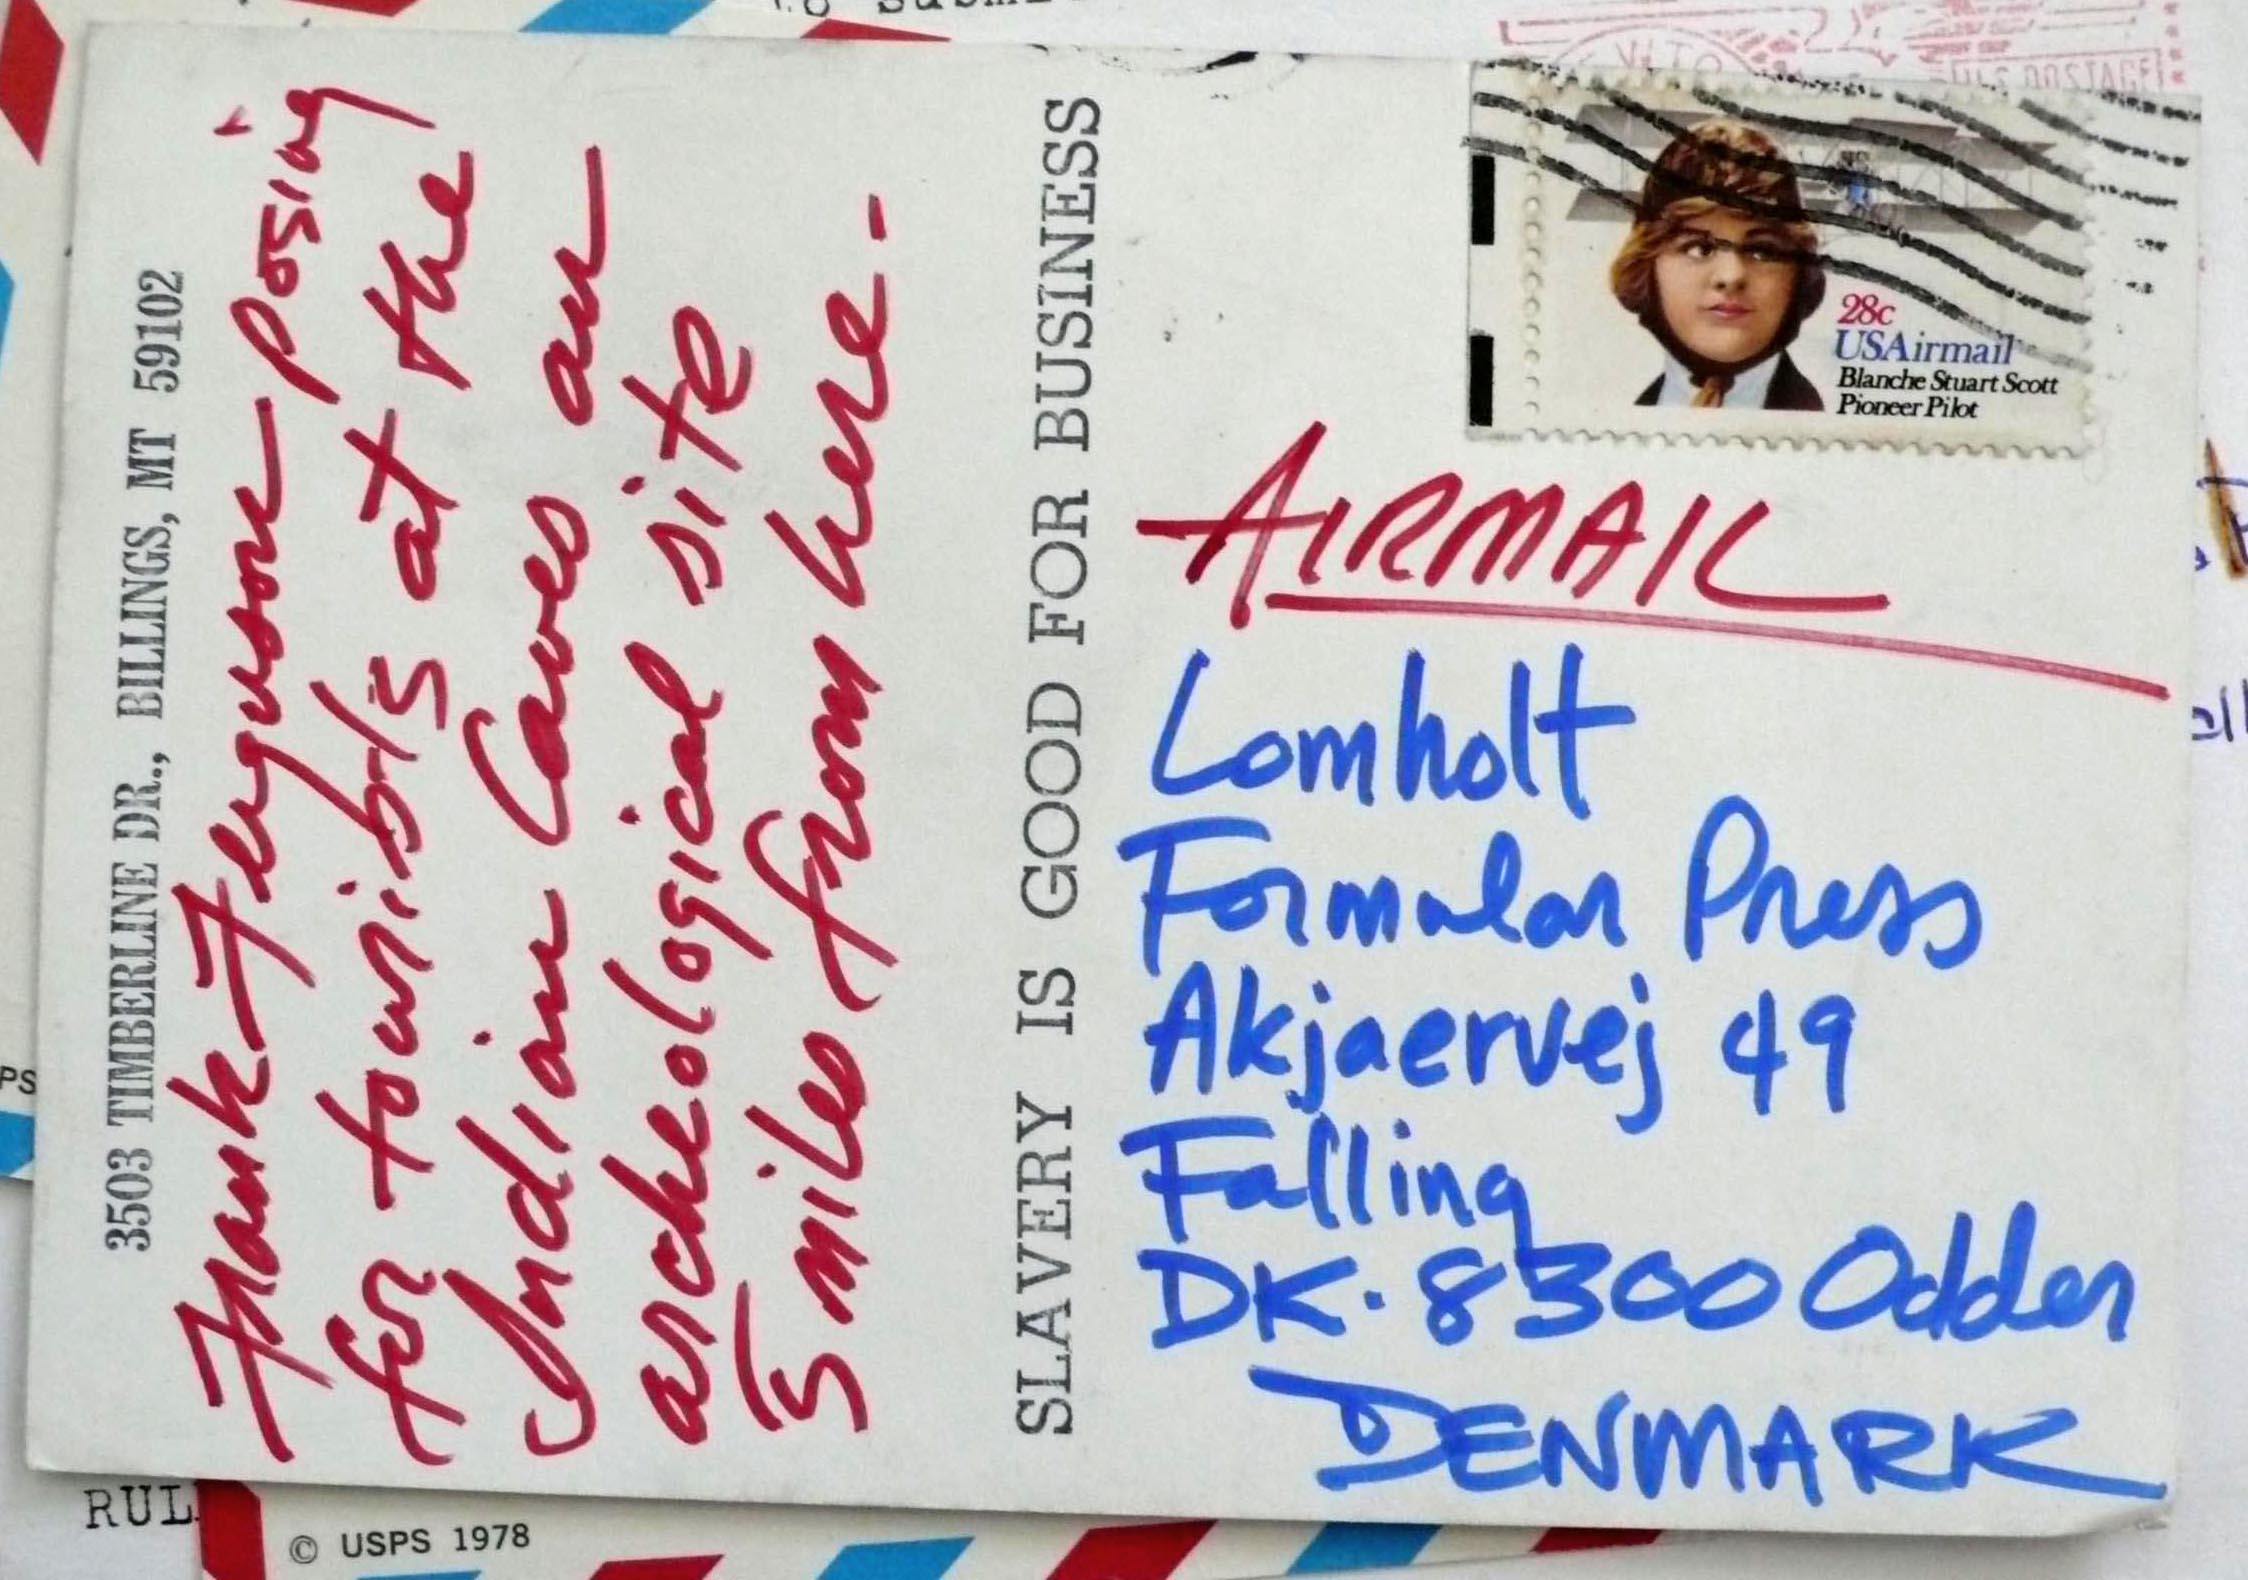 3503 TIMBERLINE DR., BILLINGS, MT 59102
Frank Ferguson posing
for tourists at the
Indian Caves an
archeological site
5 miles from here.
SLAVERY IS GOOD FOR BUSINESS
28c
USAirmail
Blanche Stuart Scott
Pioneer Pilot
AIRMAIL
Lomholt
Formular Press
Akjaervej 49
Falling
DK. 8300 Odder
DENMARK
U.S. POSTAGE
PS
RUL
© USPS 1978